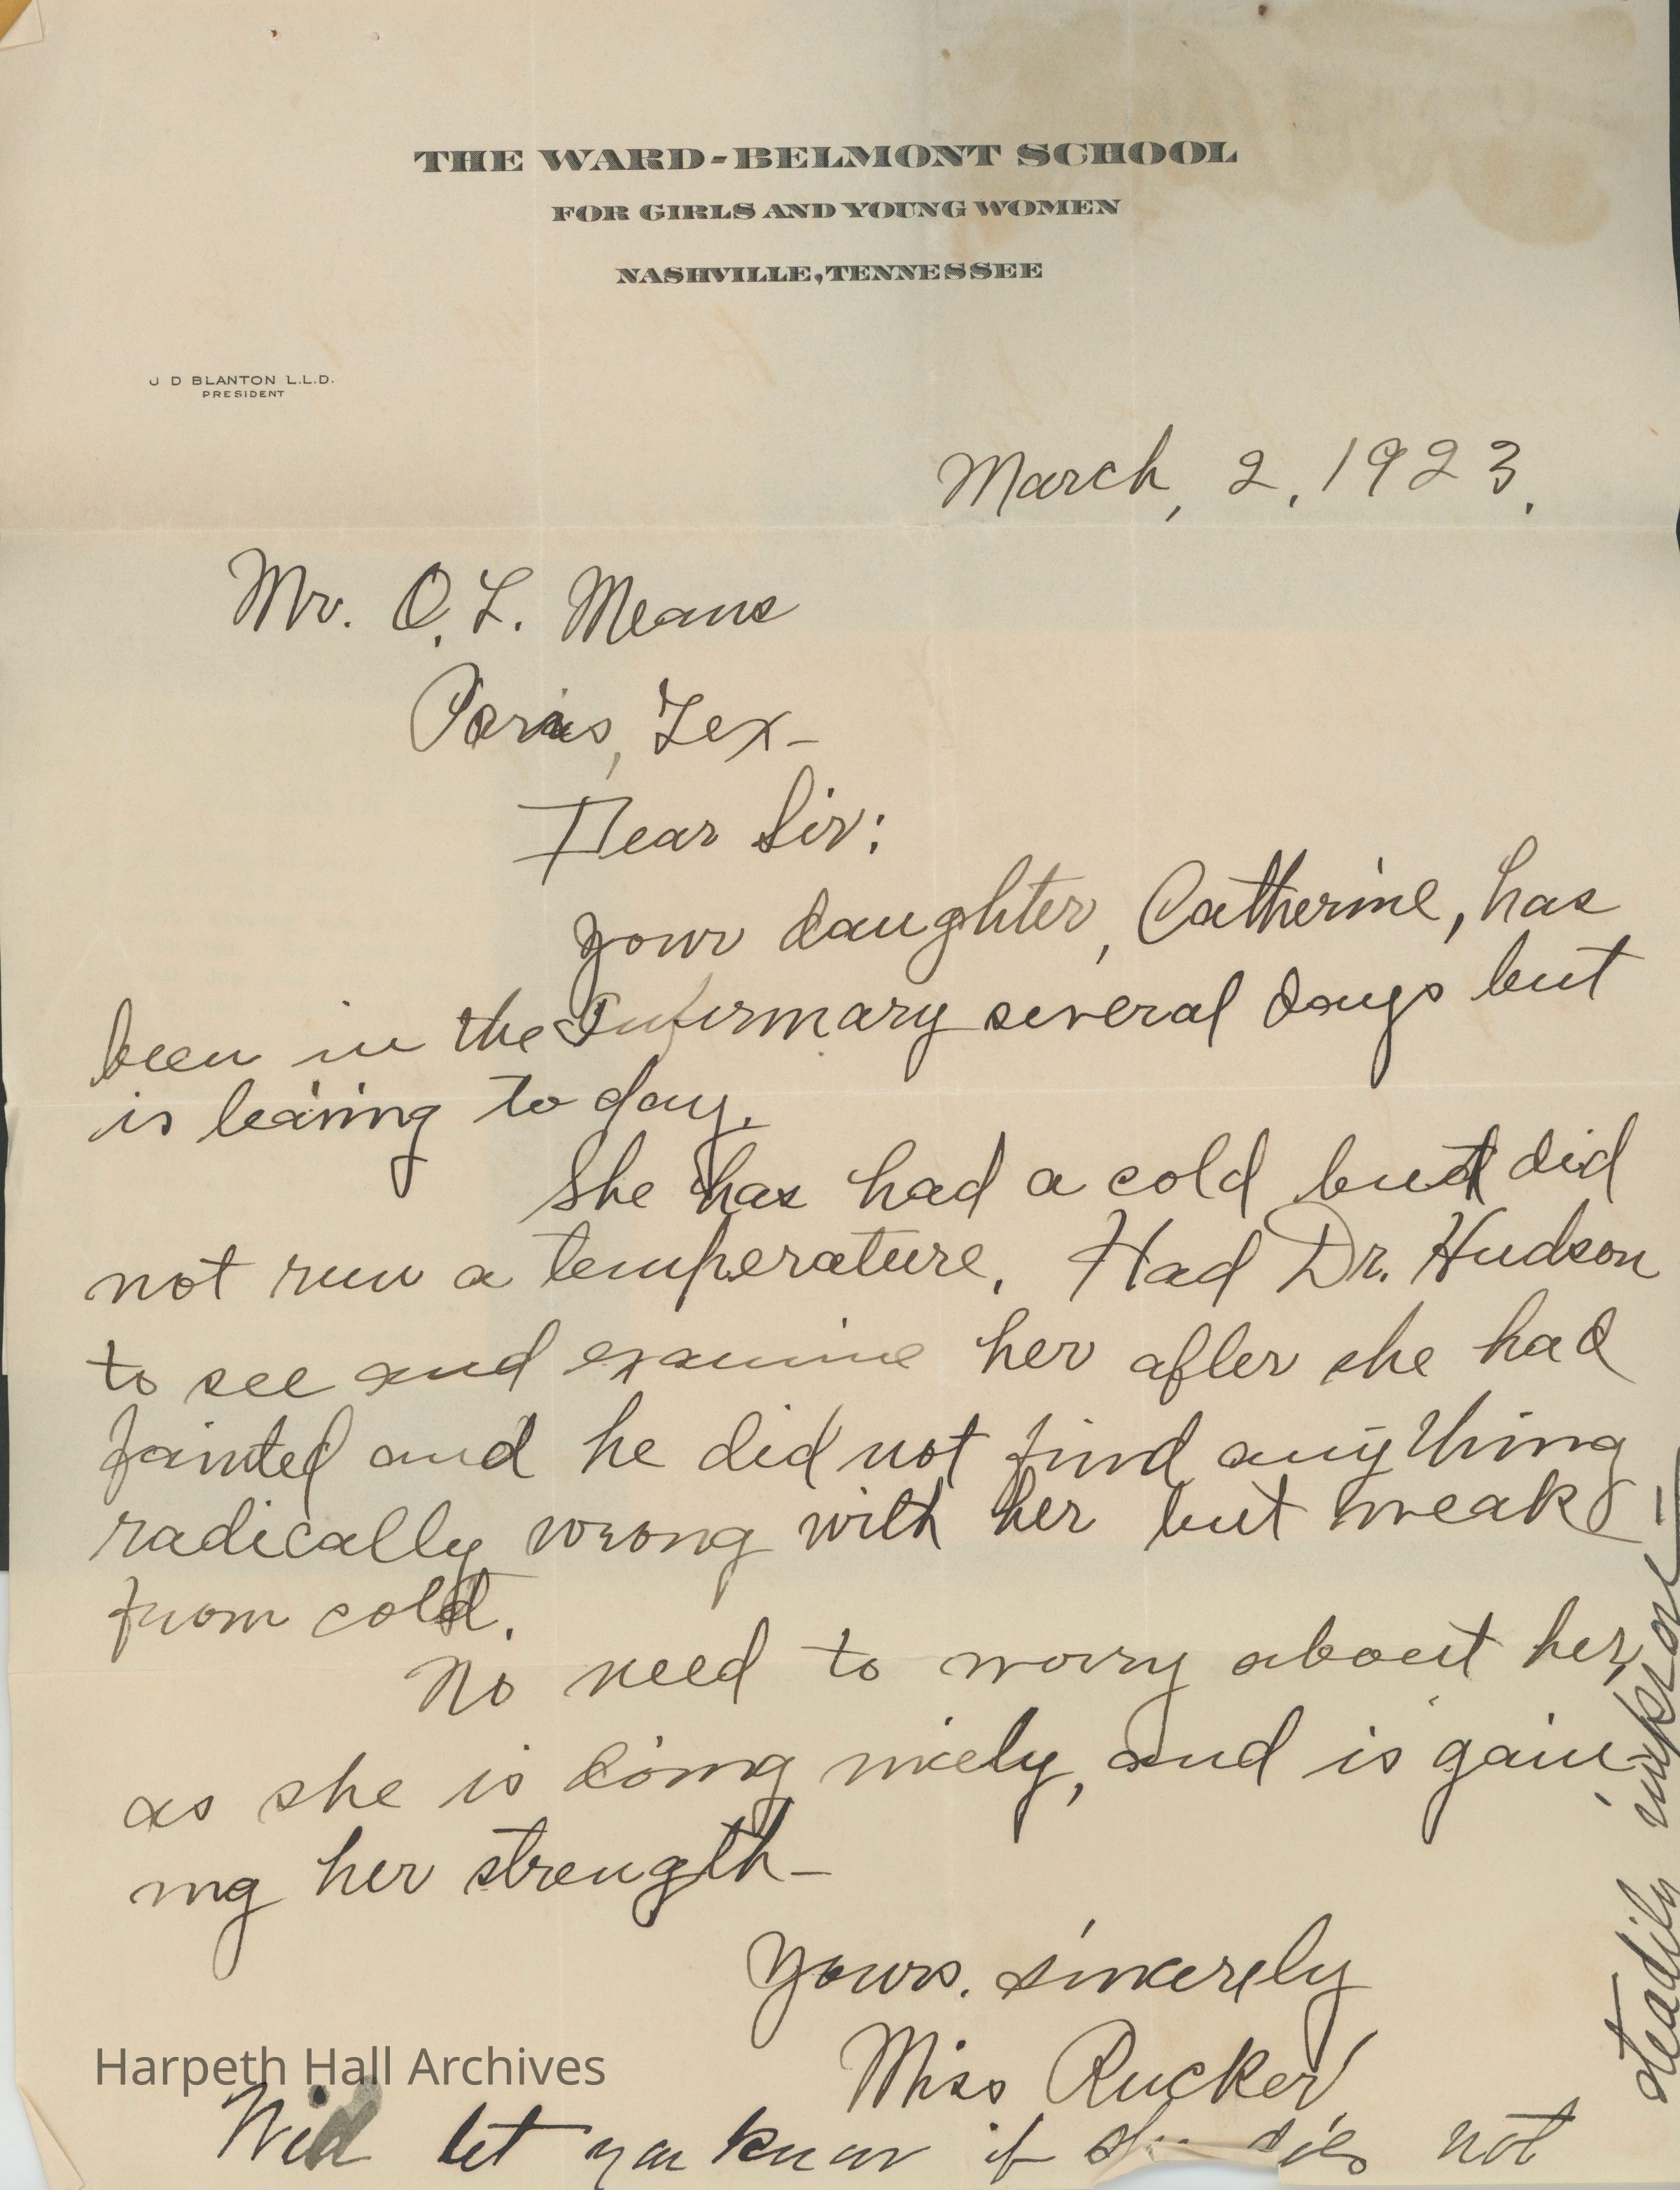 THE WARD-BELMONT SCHOOL
FOR GIRLS AND YOUNG WOMEN
NASHVILLE, TENNESSEE
J D BLANTON L.L.D.
PRESIDENT
March, 2, 1923.
Mr. O. L. Means
Paris, Tex-
Dear Sir:
Your daughter, Catherine, has
been in the Infirmary several days but
is leaving to day.
She has had a cold but did
not run a temperature. Had Dr. Hudson
to see and examine her after she had
fainted and he did not find anything
radically wrong with her but weak
from cold.
No need to worry about her,
as she is doing nicely, and is gain-
ing her strength-
Yours. sincerely
Miss Rucker
Harpeth Hall Archives
Will let you know if she does not
steadily improve-